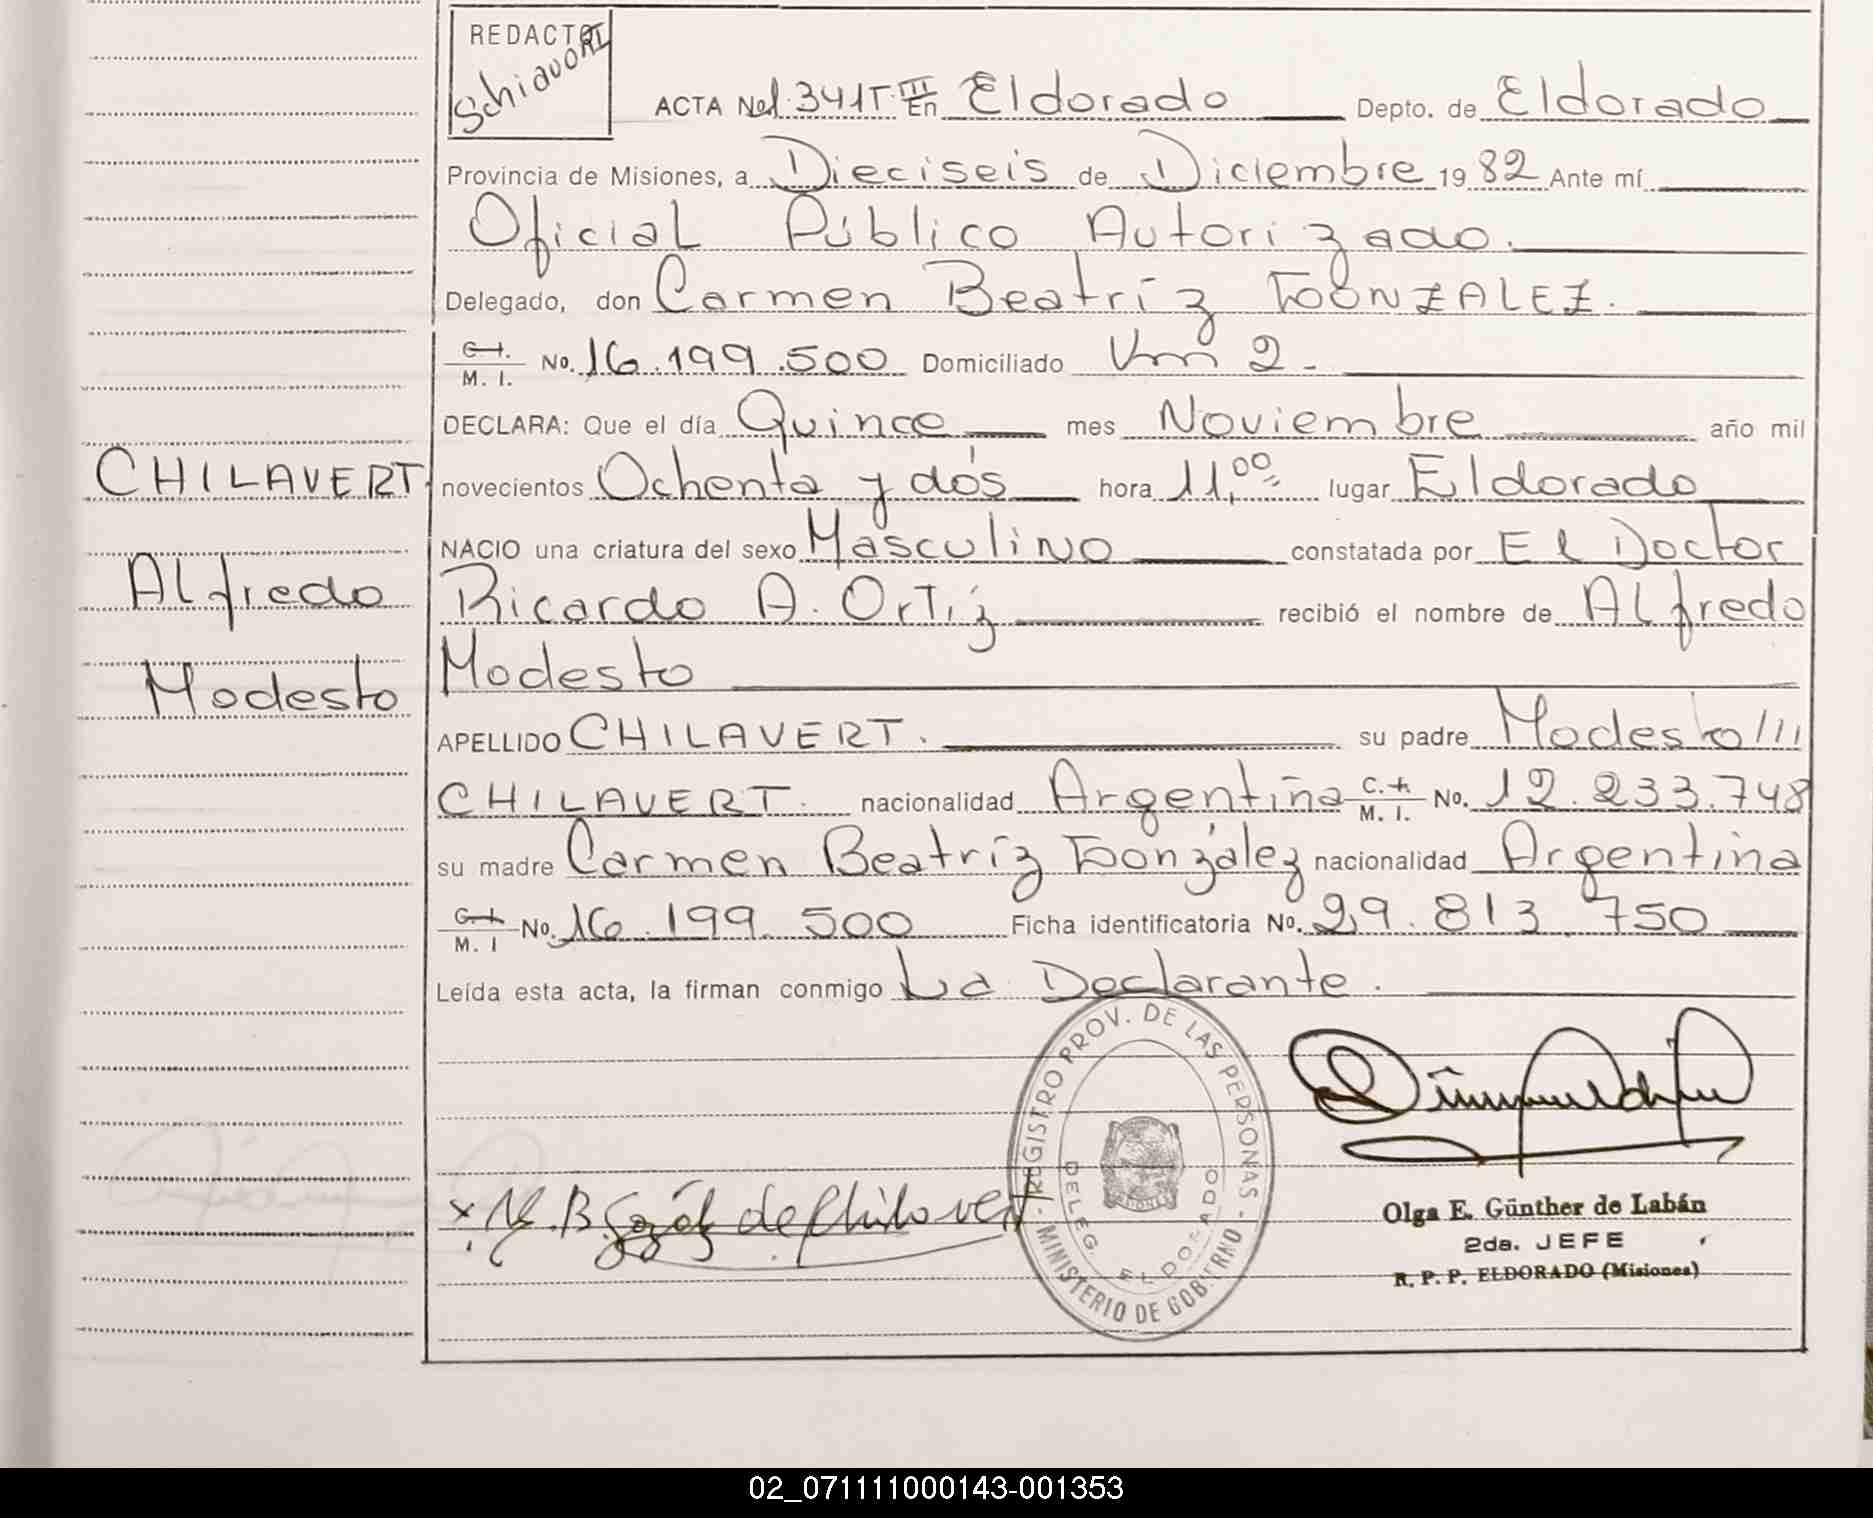 REDACTOR
Schiavoni
ACTA No 1.341 T. III En Eldorado Depto. de Eldorado
Provincia de Misiones, a Dieciseis de Diciembre 1982 Ante mí
Oficial Público Autorizado.
Delegado, don Carmen Beatríz GONZALEZ.
C. I. M. I. No. 16.199.500 Domiciliado Km 2.
DECLARA: Que el día Quince mes Noviembre año mil
CHILAVERT.
novecientos Ochenta y dós hora 11,00 lugar Eldorado
NACIO una criatura del sexo Masculino constatada por El Doctor
Alfredo
Ricardo A. Ortíz recibió el nombre de Alfredo
Modesto
Modesto
APELLIDO CHILAVERT. su padre Modesto ///
CHILAVERT. nacionalidad Argentina C. I. M. I. No. 12.233.748
su madre Carmen Beatríz González nacionalidad Argentina
C. I. M. I No. 16.199.500 Ficha identificatoria No. 29.813.750
Leída esta acta, la firman conmigo La Declarante.
REGISTRO PROV. DE LAS PERSONAS - MINISTERIO DE GOBIERNO -
DELEG. ELDORADO
de Chilavert
Olga E. Günther de Labán
2da. JEFE
R. P. P. ELDORADO (Misiones)
02_071111000143-001353